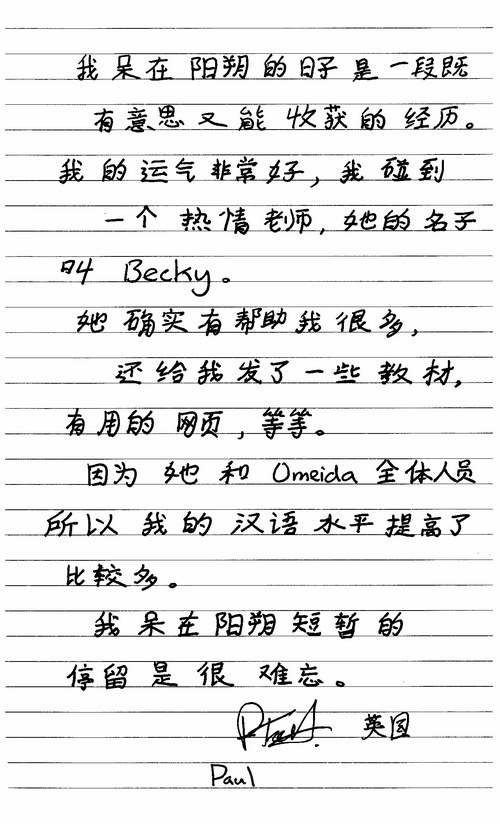 我呆在阳朔的日子是一段既
有意思又能收获的经历。
我的运气非常好，我碰到
一个热情老师，她的名字
叫 Becky。
她确实有帮助我很多，
还给我发了一些教材，
有用的网页，等等。
因为她和 Omeida 全体人员
所以我的汉语水平提高了
比较多。
我呆在阳朔短暂的
停留是很难忘。
英国
Paul